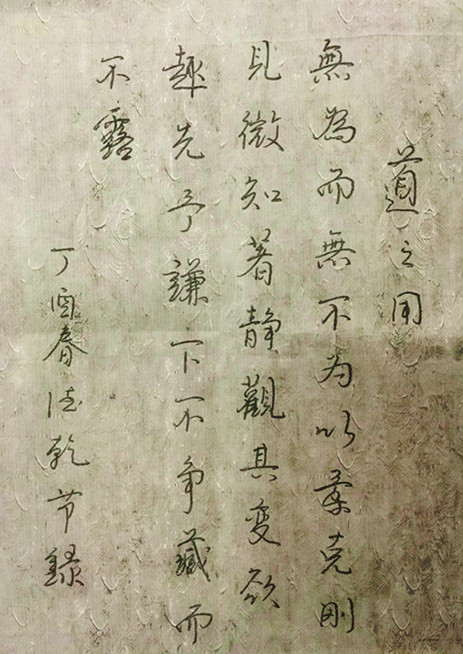 道之用
無為而無不为以柔克刚
見微知著静觀其变欲
趣先予謙下不争藏而
不露
丁酉春法乾节録